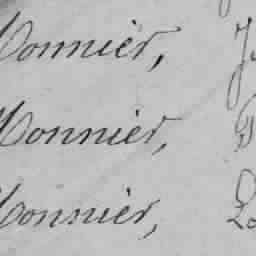 Monnier,
Monnier,
Monnier,